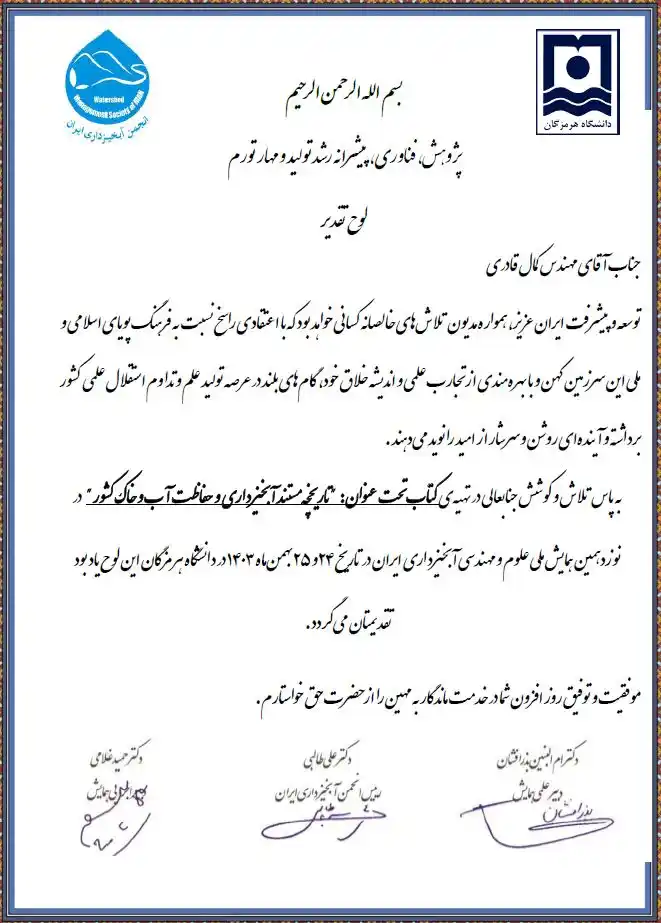 Watershed
Management Society of Iran
انجمن آبخیزداری ایران
دانشگاه هرمزگان
بسم الله الرحمن الرحیم
پژوهش، فناوری، پیشرانه رشد تولید و مهار تورم
لوح تقدیر
جناب آقای مهندس کمال قادری
توسعه و پیشرفت ایران عزیز، همواره مدیون تلاش‌های خالصانه کسانی خواهد بود که با اعتقادی راسخ نسبت به فرهنگ پویای اسلامی و
ملی این سرزمین کهن و با بهره مندی از تجارب علمی و اندیشه خلاق خود، گام های بلند در عرصه تولید علم و تداوم استقلال علمی کشور
برداشته و آینده‌ای روشن و سرشار از امید را نوید می‌دهند.
به پاس تلاش و کوشش جنابعالی در تهیه‌ی کتاب تحت عنوان: "تاریخچه مستند آبخیزداری و حفاظت آب و خاک کشور" در
نوزدهمین همایش ملی علوم و مهندسی آبخیزداری ایران در تاریخ ۲۴ و ۲۵ بهمن ماه ۱۴۰۳ در دانشگاه هرمزگان این لوح یادبود
تقدیمتان می‌گردد.
موفقیت و توفیق روز افزون شما در خدمت ماندگار به میهن را از حضرت حق خواستارم.
دکتر ام البنین بذرافشان
دبیر علمی همایش
بذرافشان
دکتر علی طالبی
رئیس انجمن آبخیزداری ایران
دکتر حمید غلامی
دبیر اجرایی همایش